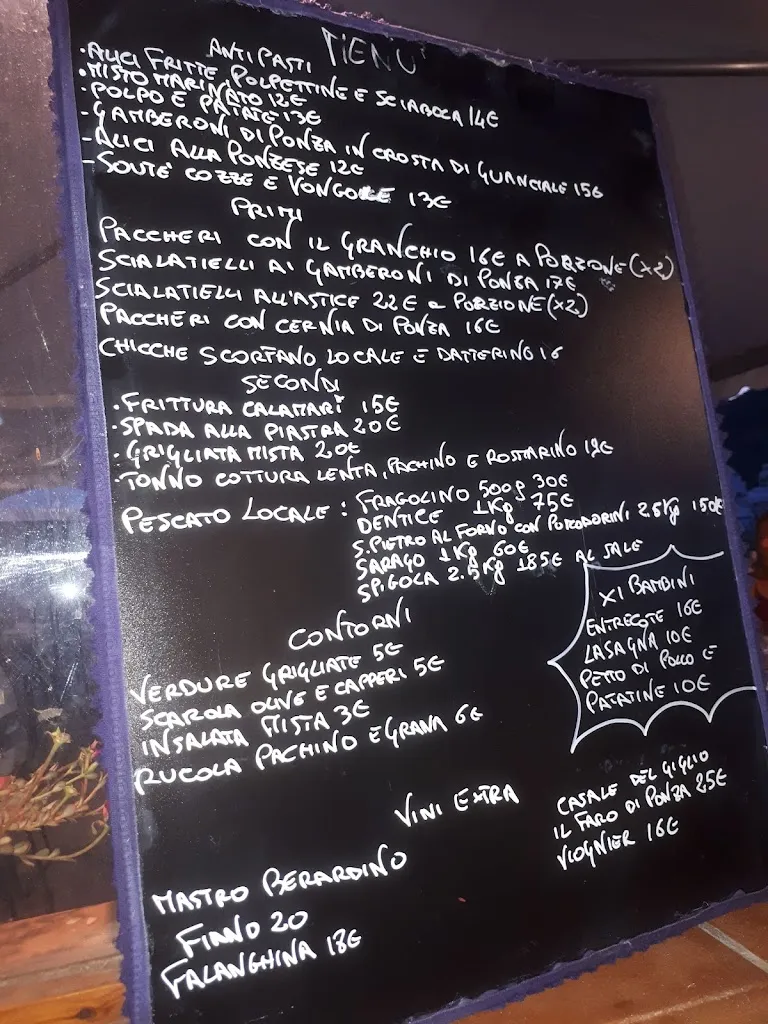 MENU
ANTIPASTI
·ALICI FRITTE, POLPETTINE E SCIABOLA 14€
·MISTO MARINATO 12€
·POLPO E PATATE 13€
·GAMBERONI DI PONZA IN CROSTA DI GUANCIALE 15€
-ALICI ALLA PONZESE 12€
-SOUTE' COZZE E VONGOLE 13€
PRIMI
PACCHERI CON IL GRANCHIO 16€ A PORZIONE (x2)
SCIALATIELLI AI GAMBERONI DI PONZA 17€
SCIALATIELLI ALL'ASTICE 22€ a PORZIONE (x2)
PACCHERI CON CERNIA DI PONZA 16€
CHICCHE SCORFANO LOCALE E DATTERINO 16
SECONDI
·FRITTURA CALAMARI 15€
·SPADA ALLA PIASTRA 20€
·GRIGLIATA MISTA 20€
·TONNO COTTURA LENTA, PACHINO E ROSMARINO 18€
PESCATO LOCALE : FRAGOLINO 500g 30€
DENTICE 1Kg 75€
S.PIETRO AL FORNO CON POMODORINI 2.5Kg 150€
SARAGO 1Kg 60€
SPIGOLA 2.5Kg 185€ AL SALE
XI BAMBINI
ENTRECOTE 16€
LASAGNA 10€
PETTO DI POLLO E
PATATINE 10€
CONTORNI
VERDURE GRIGLIATE 5€
SCAROLA OLIVE E CAPPERI 5€
INSALATA MISTA 3€
RUCOLA PACHINO E GRANA 6€
VINI EXTRA
CASALE DEL GIGLIO
IL FARO DI PONZA 25€
VIOGNIER 16€
MASTRO BERARDINO
FIANO 20
FALANGHINA 18€